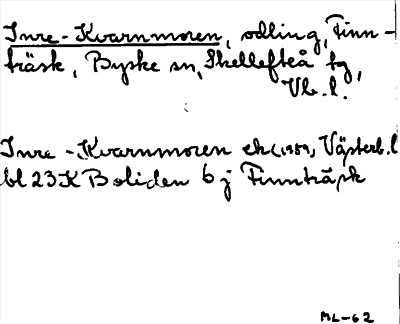 Inre-Kvarnmoren, odling, Finn-
träsk, Byske sn, Skellefteå tg,
Vb. l.
Inre-Kvarnmoren ek(1989, Västerb. l
bl 23K Boliden 6 j Finnträsk
ML-62